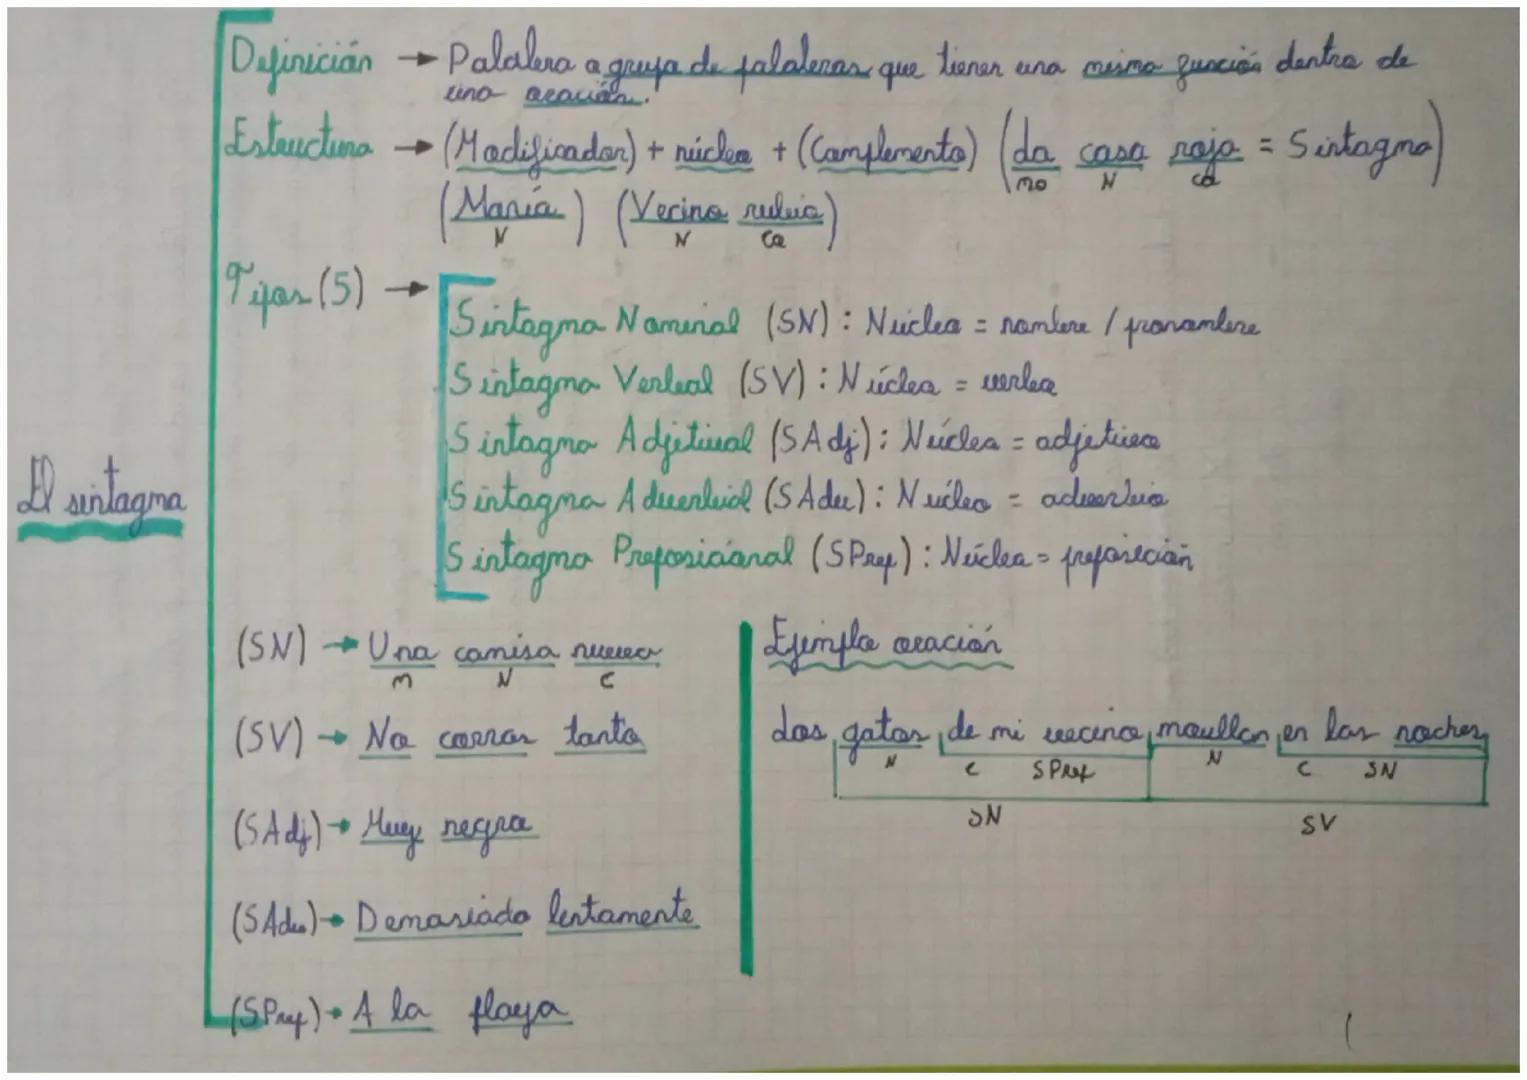 El sintagma
Definición → Palabra o grupo de palabras que tienen una misma función dentro de
una oración.
Estructura → (Modificador) + núcleo + (Complemento) (La casa roja = Sintagma)
mo N co
(María) (Vecino rubio)
N N co
Tipos (5) →
Sintagma Nominal (SN): Núcleo = nombre / pronombre
Sintagma Verbal (SV): Núcleo = verbo
Sintagma Adjetival (SAdj): Núcleo = adjetivo
Sintagma Adverbial (SAdv): Núcleo = adverbio
Sintagma Preposicional (SPrep): Núcleo = preposición
(SN) → Una camisa nueva
m N C
(SV) → No corras tanto
(SAdj) → Muy negro
(SAdv) → Demasiado lentamente
(SPrep) → A la playa
Ejemplo oración
Los gatos de mi vecino maullan en las noches
N C SPrep N C SN
SN SV